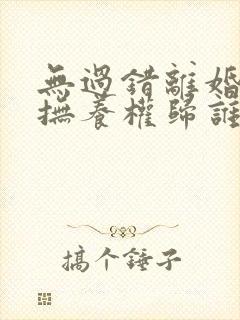 無過錯離婚
撫養權歸誰
搞个锤子